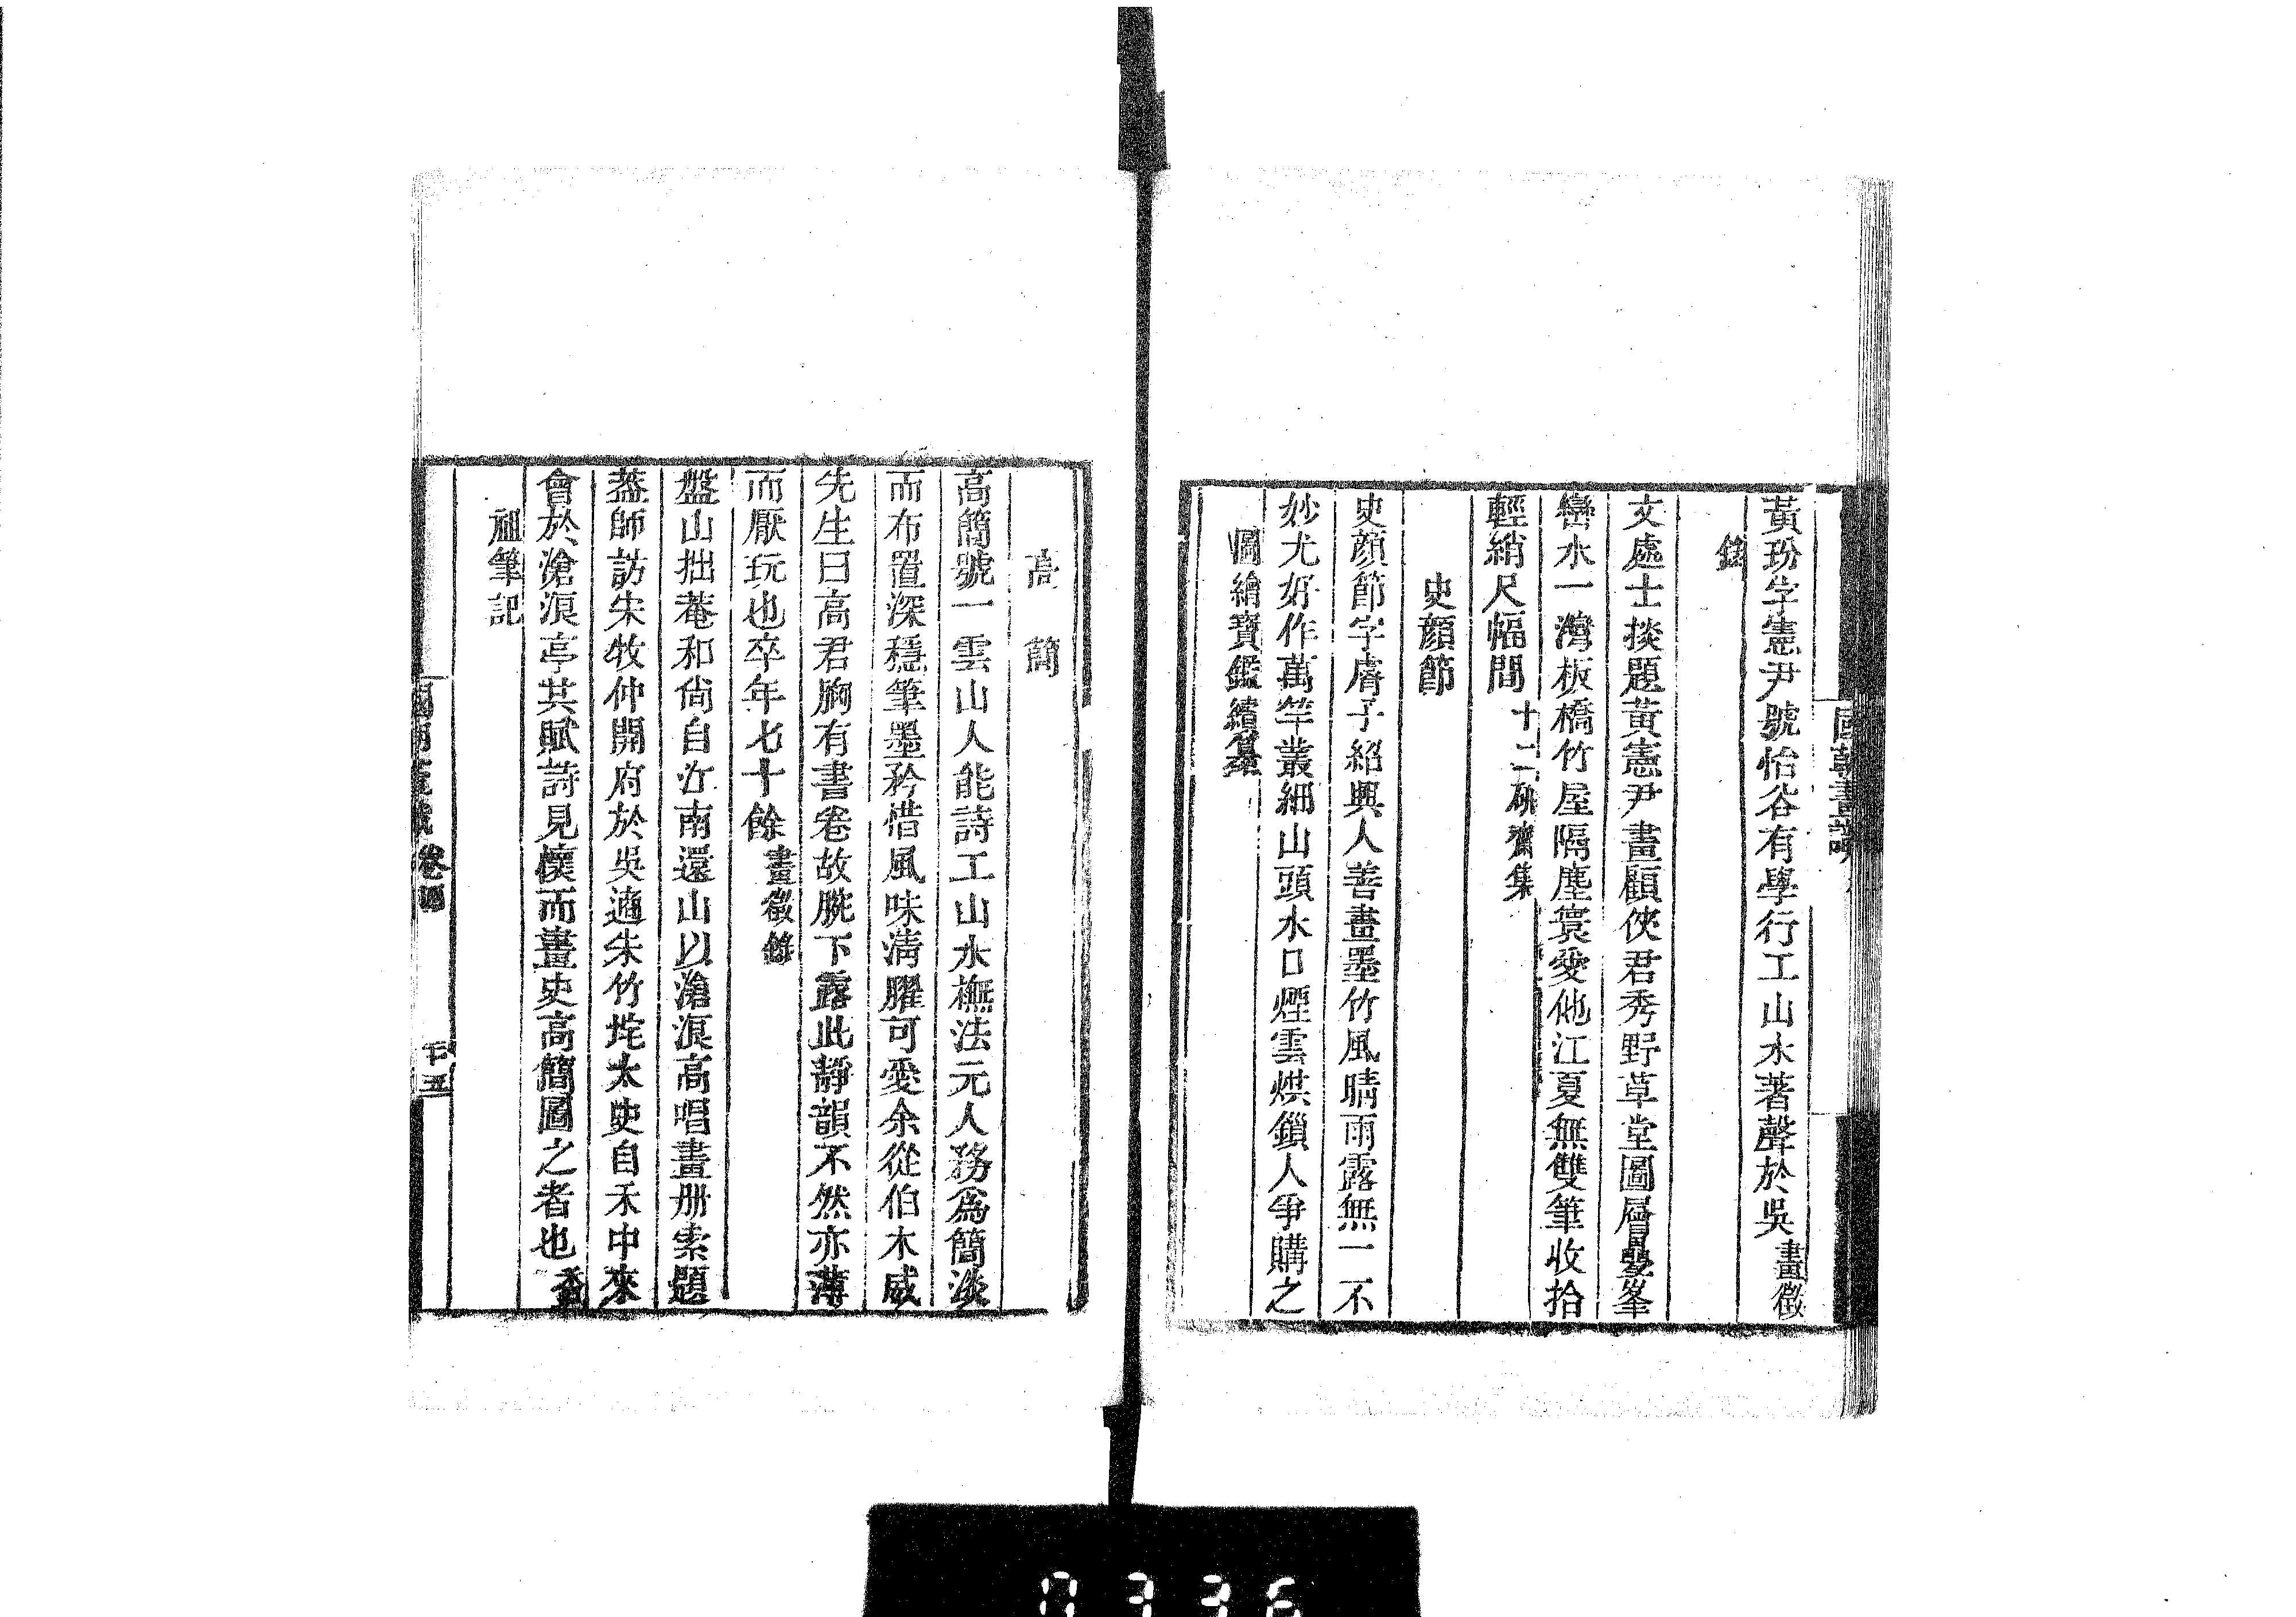 國朝畫識
黃玢字憲尹號怡谷有學行工山水著聲於吳畫徵
錄
文處士掞題黃憲尹畫顧俠君秀野草堂圖層疊峯
巒水一灣板橋竹屋隔塵寰愛他江夏無雙筆收拾
輕綃尺幅間十二硯齋集
史顏節
史顏節字膚子紹興人善畫墨竹風晴雨露無一不
妙尤好作萬竿叢細山頭水口煙雲烘鎖人爭購之
圖繪寶鑑續纂
高簡
高簡號一雲山人能詩工山水橅法元人務爲簡淡
而布置深穩筆墨矜惜風味淸臞可愛余從伯木威
先生曰高君胸有書卷故腕下露此靜韻不然亦薄
而厭玩也卒年七十餘畫徵錄
盤山拙菴和尙自江南還山以滄浪高唱畫册索題
蓋師訪朱牧仲開府於吳適朱竹垞太史自禾中來
會於滄浪亭共賦詩見懷而畫史高簡圖之者也香
祖筆記
國朝畫識 卷四 十五
0336